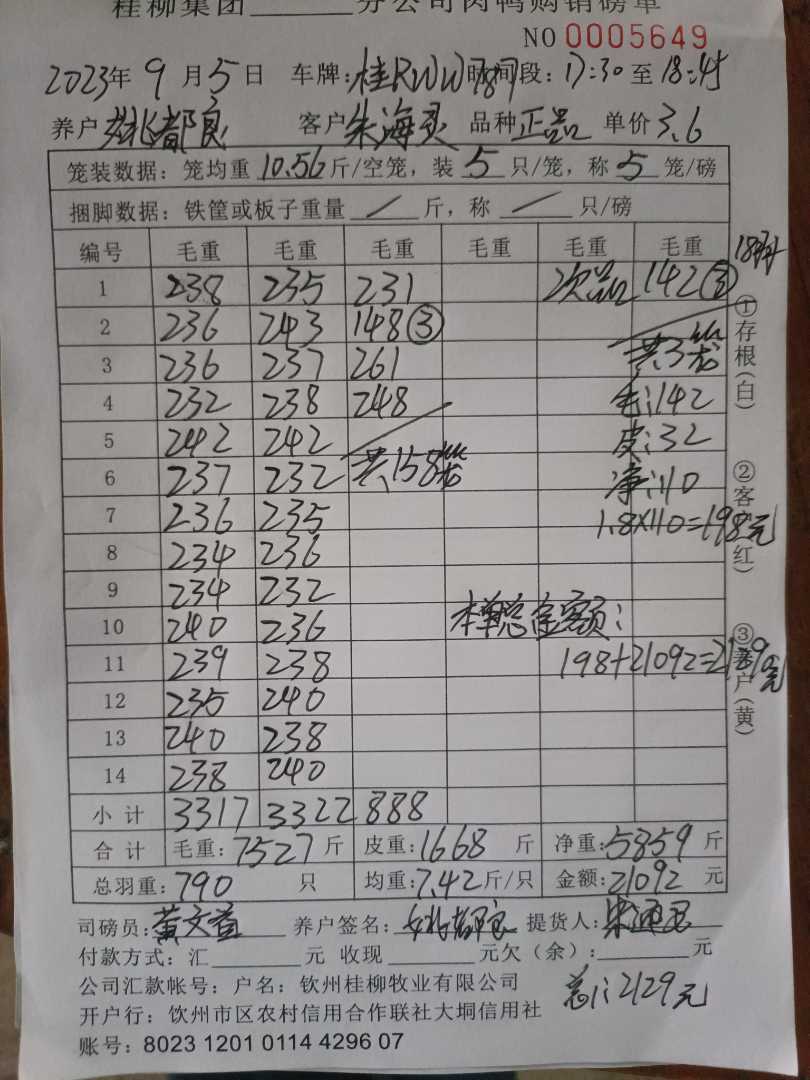 桂柳集团______分公司肉鸭购销磅单
NO 0005649
2023年9月5日 车牌:桂RWW787 时间段:17:30至18:45
养户 姚都良 客户 朱海灵 品种 正品 单价 3.6
笼装数据: 笼均重 10.56 斤/空笼, 装 5 只/笼, 称 5 笼/磅
捆脚数据: 铁筐或板子重量 / 斤, 称 / 只/磅
编号 毛重 毛重 毛重 毛重 毛重 毛重
1 238 235 231 次品 142③
2 236 243 148③
3 236 237 261 共3笼
4 232 238 248 毛:142
5 242 242 皮:32
6 237 232 共158笼 净:110
7 236 235 1.8×110=198元
8 234 236
9 234 232
10 240 236 本单总金额:
11 239 238 198+21092=21290元
12 235 240
13 240 238
14 238 240
小计 3317 3322 888
合计 毛重:7527斤 皮重:1668斤 净重:5859斤
总羽重:790只 均重:7.42斤/只 金额:21092元
司磅员:黄文益 养户签名:姚都良 提货人:
付款方式: 汇______元 收现______元欠(余):______元
公司汇款帐号: 户名: 钦州桂柳牧业有限公司
总:2129元
开户行: 钦州市区农村信用合作联社大垌信用社
账号: 8023 1201 0114 4296 07
①存根(白)
②客户(红)
③养户(黄)